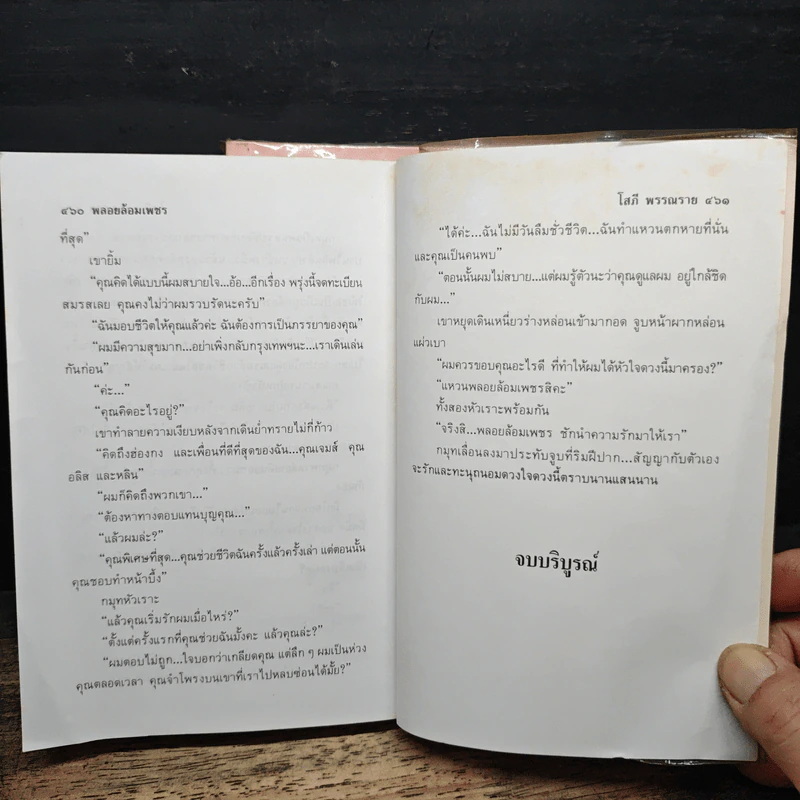 ๔๖๐ พลอยล้อมเพชร
ที่สุด”
เขายิ้ม
“คุณคิดได้แบบนี้ผมสบายใจ...อ้อ...อีกเรื่อง พรุ่งนี้จดทะเบียน
สมรสเลย คุณคงไม่ว่าผมรวบรัดนะครับ”
“ฉันมอบชีวิตให้คุณแล้วค่ะ ฉันต้องการเป็นภรรยาของคุณ”
“ผมมีความสุขมาก...อย่าเพิ่งกลับกรุงเทพฯนะ...เราเดินเล่น
กันก่อน”
“ค่ะ...”
“คุณคิดอะไรอยู่?”
เขาทำลายความเงียบหลังจากเดินย่ำทรายไม่กี่ก้าว
“คิดถึงฮ่องกง และเพื่อนที่ดีที่สุดของฉัน...คุณเจมส์ คุณ
อลิส และหลิน”
“ผมก็คิดถึงพวกเขา...”
“ต้องหาทางตอบแทนบุญคุณ...”
“แล้วผมล่ะ?”
“คุณพิเศษที่สุด...คุณช่วยชีวิตฉันครั้งแล้วครั้งเล่า แต่ตอนนั้น
คุณชอบทำหน้าบึ้ง”
กมุทหัวเราะ
“แล้วคุณเริ่มรักผมเมื่อไหร่?”
“ตั้งแต่ครั้งแรกที่คุณช่วยฉันมั้งคะ แล้วคุณล่ะ?”
“ผมตอบไม่ถูก...ใจบอกว่าเกลียดคุณ แต่ลึก ๆ ผมเป็นห่วง
คุณตลอดเวลา คุณจำโพรงบนเขาที่เราไปหลบซ่อนได้มั้ย?”
โสภี พรรณราย ๔๖๑
“ได้ค่ะ...ฉันไม่มีวันลืมชั่วชีวิต...ฉันทำแหวนตกหายที่นั่น
และคุณเป็นคนพบ”
“ตอนนั้นผมไม่สบาย...แต่ผมรู้ตัวนะว่าคุณดูแลผม อยู่ใกล้ชิด
กับผม...”
เขาหยุดเดินเหนี่ยวร่างหล่อนเข้ามากอด จูบหน้าผากหล่อน
แผ่วเบา
“ผมควรขอบคุณอะไรดี ที่ทำให้ผมได้หัวใจดวงนี้มาครอง?”
“แหวนพลอยล้อมเพชรสิคะ”
ทั้งสองหัวเราะพร้อมกัน
“จริงสิ...พลอยล้อมเพชร ชักนำความรักมาให้เรา”
กมุทเลื่อนลงมาประทับจูบที่ริมฝีปาก...สัญญากับตัวเอง
จะรักและทะนุถนอมดวงใจดวงนี้ตราบนานแสนนาน
จบบริบูรณ์